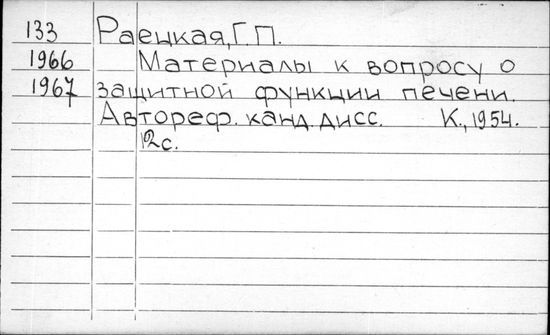 133 Раецкая, Г.П.
1966 Материалы к вопросу о
1967 защитной функции печени.
Автореф. канд. дисс. К., 1954.
12с.